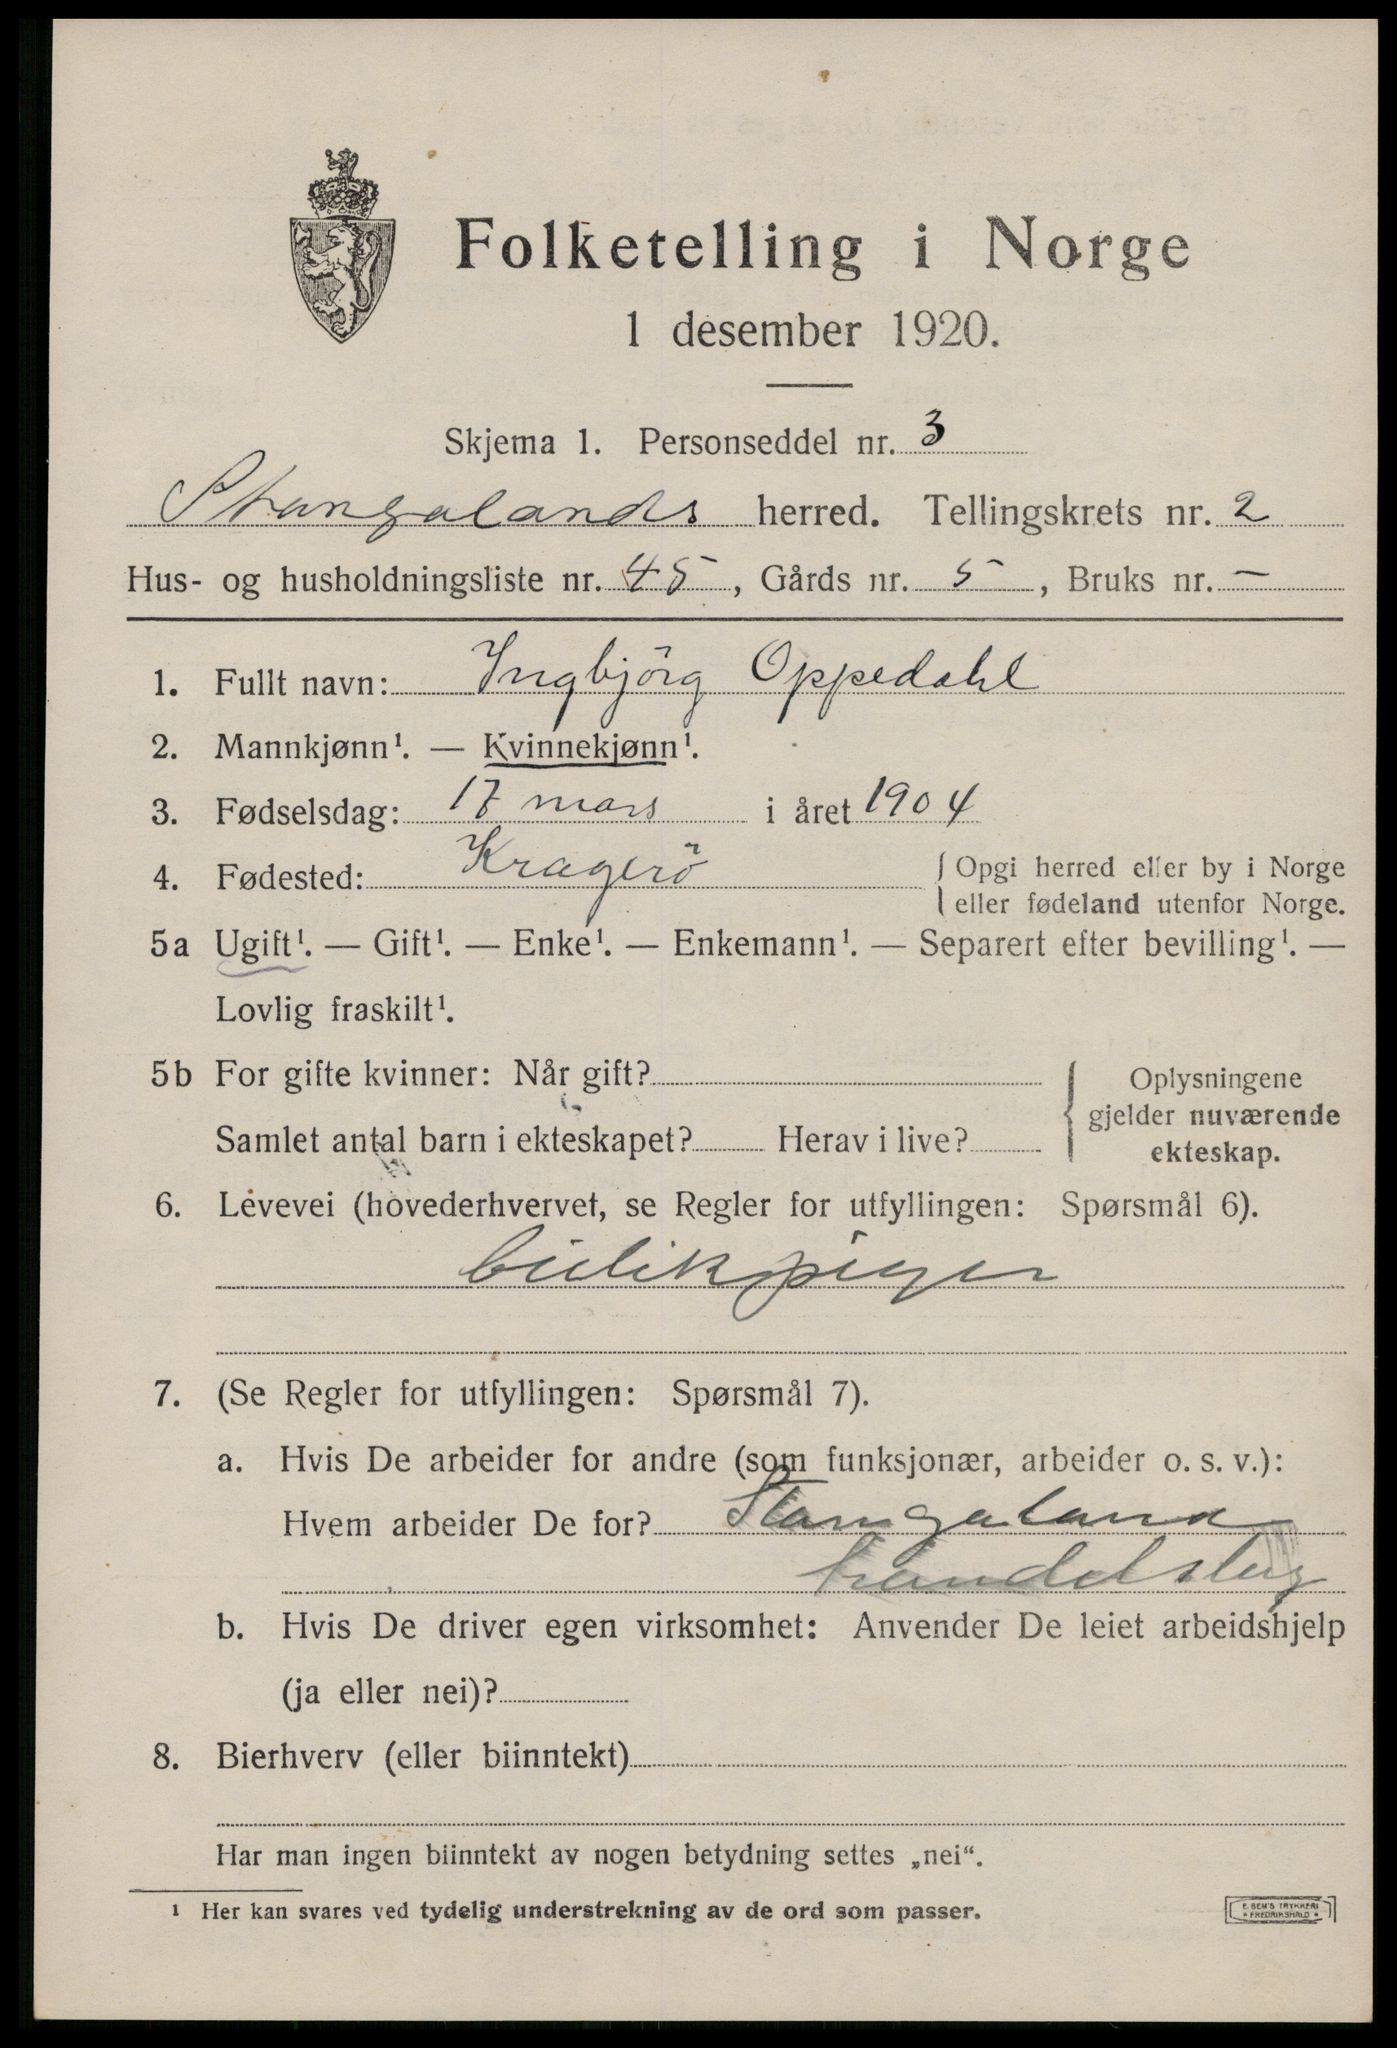 Folketelling i Norge
1 desember 1920.
Skjema 1. Personseddel nr. 3
Skangalands herred. Tellingskrets nr. 2
Hus- og husholdningsliste nr. 45, Gårds nr. 5, Bruks nr. —
1. Fullt navn: Ingbjörg Oppedahl
2. Mannkjønn¹. — Kvinnekjønn¹.
3. Fødselsdag: 17 mars i året 1904
4. Fødested: Kragerö { Opgi herred eller by i Norge
eller fødeland utenfor Norge.
5a Ugift¹. — Gift¹. — Enke¹. — Enkemann¹. — Separert efter bevilling¹. —
Lovlig fraskilt¹.
5b For gifte kvinner: Når gift?
Samlet antal barn i ekteskapet? Herav i live?
{ Oplysningene
gjelder nuværende
ekteskap.
6. Levevei (hovederhvervet, se Regler for utfyllingen: Spørsmål 6).
butikpiger
7. (Se Regler for utfyllingen: Spørsmål 7).
a. Hvis De arbeider for andre (som funksjonær, arbeider o. s. v.):
Hvem arbeider De for? Stangaland
handelslag
b. Hvis De driver egen virksomhet: Anvender De leiet arbeidshjelp
(ja eller nei)?
8. Bierhverv (eller biinntekt)
Har man ingen biinntekt av nogen betydning settes „nei“.
¹ Her kan svares ved tydelig understrekning av de ord som passer.
E. SEM'S TRYKKERI
* FREDRIKSHALD *